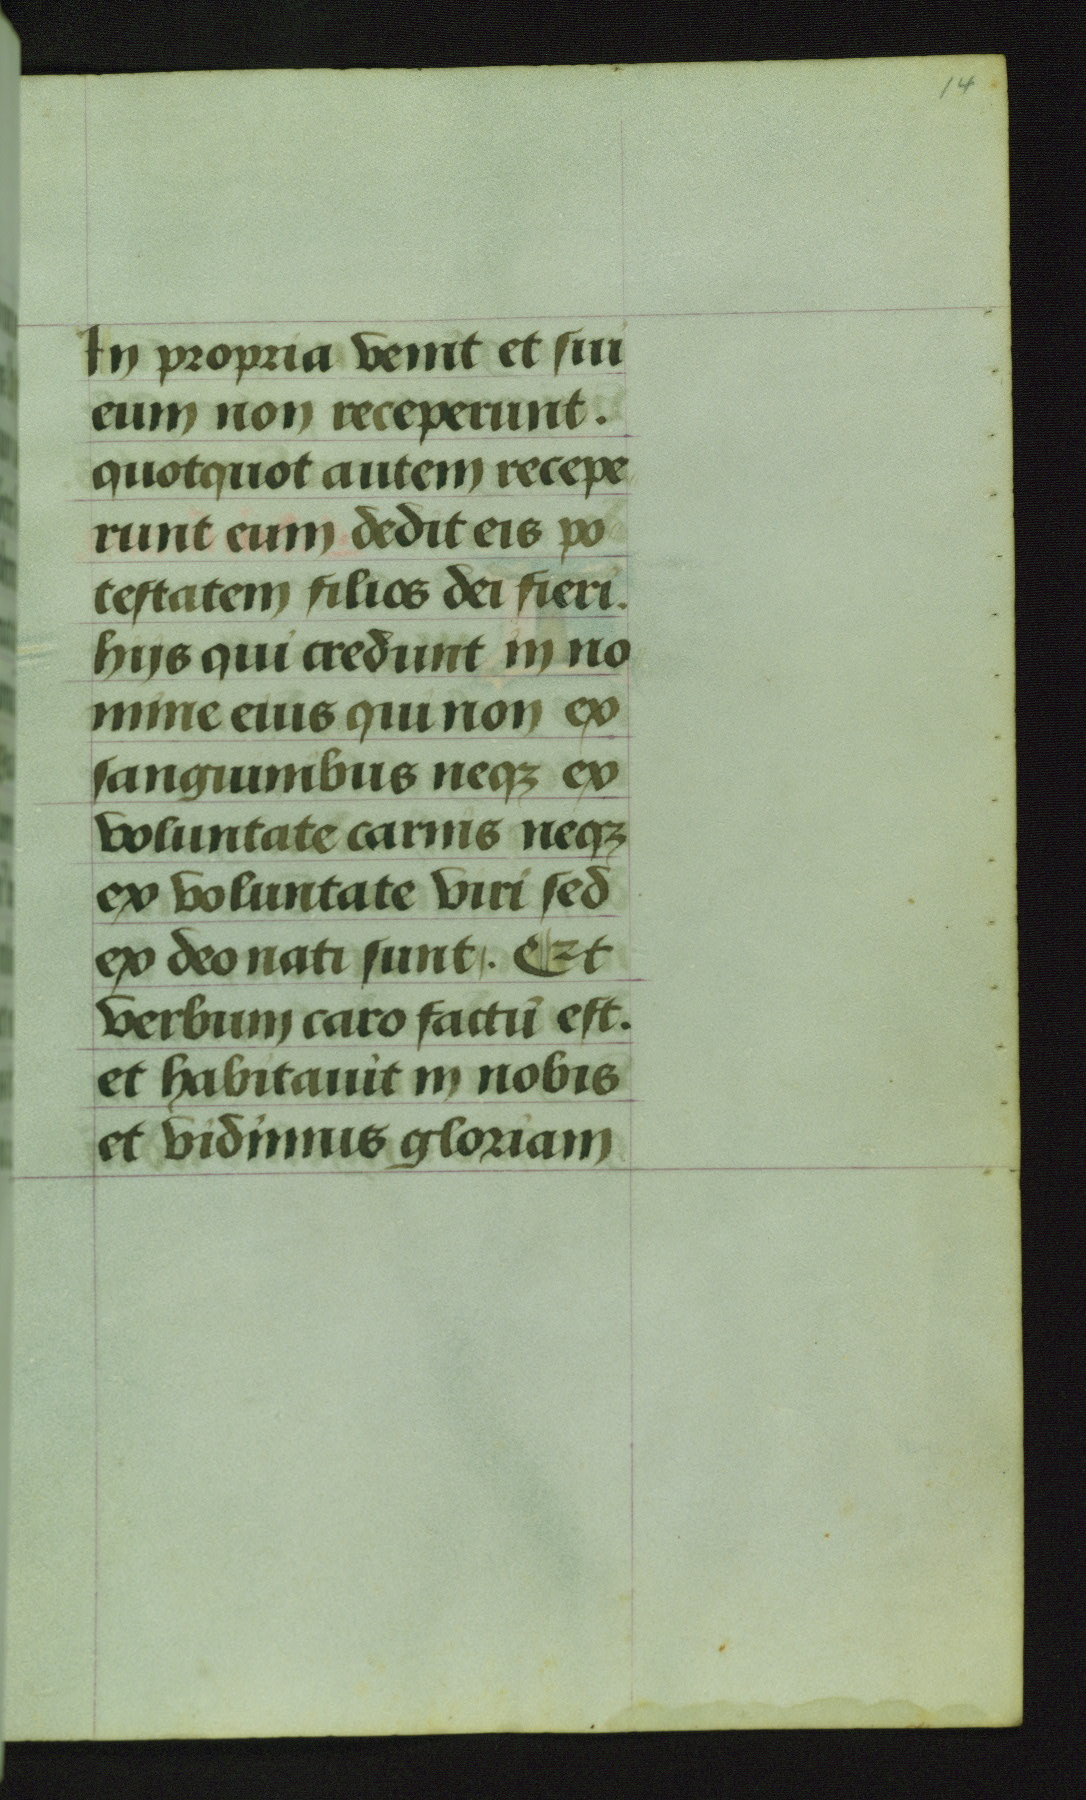 14
In propria venit et sui
eum non receperunt.
quotquot autem recepe
runt eum dedit eis po
testatem filios dei fieri.
hijs qui credunt in no
mine eius qui non ex
sanguinibus neqȝ ex
voluntate carnis neqȝ
ex voluntate viri sed
ex deo nati sunt. Et
verbum caro factū est.
et habitauit in nobis
et vidimus gloriam